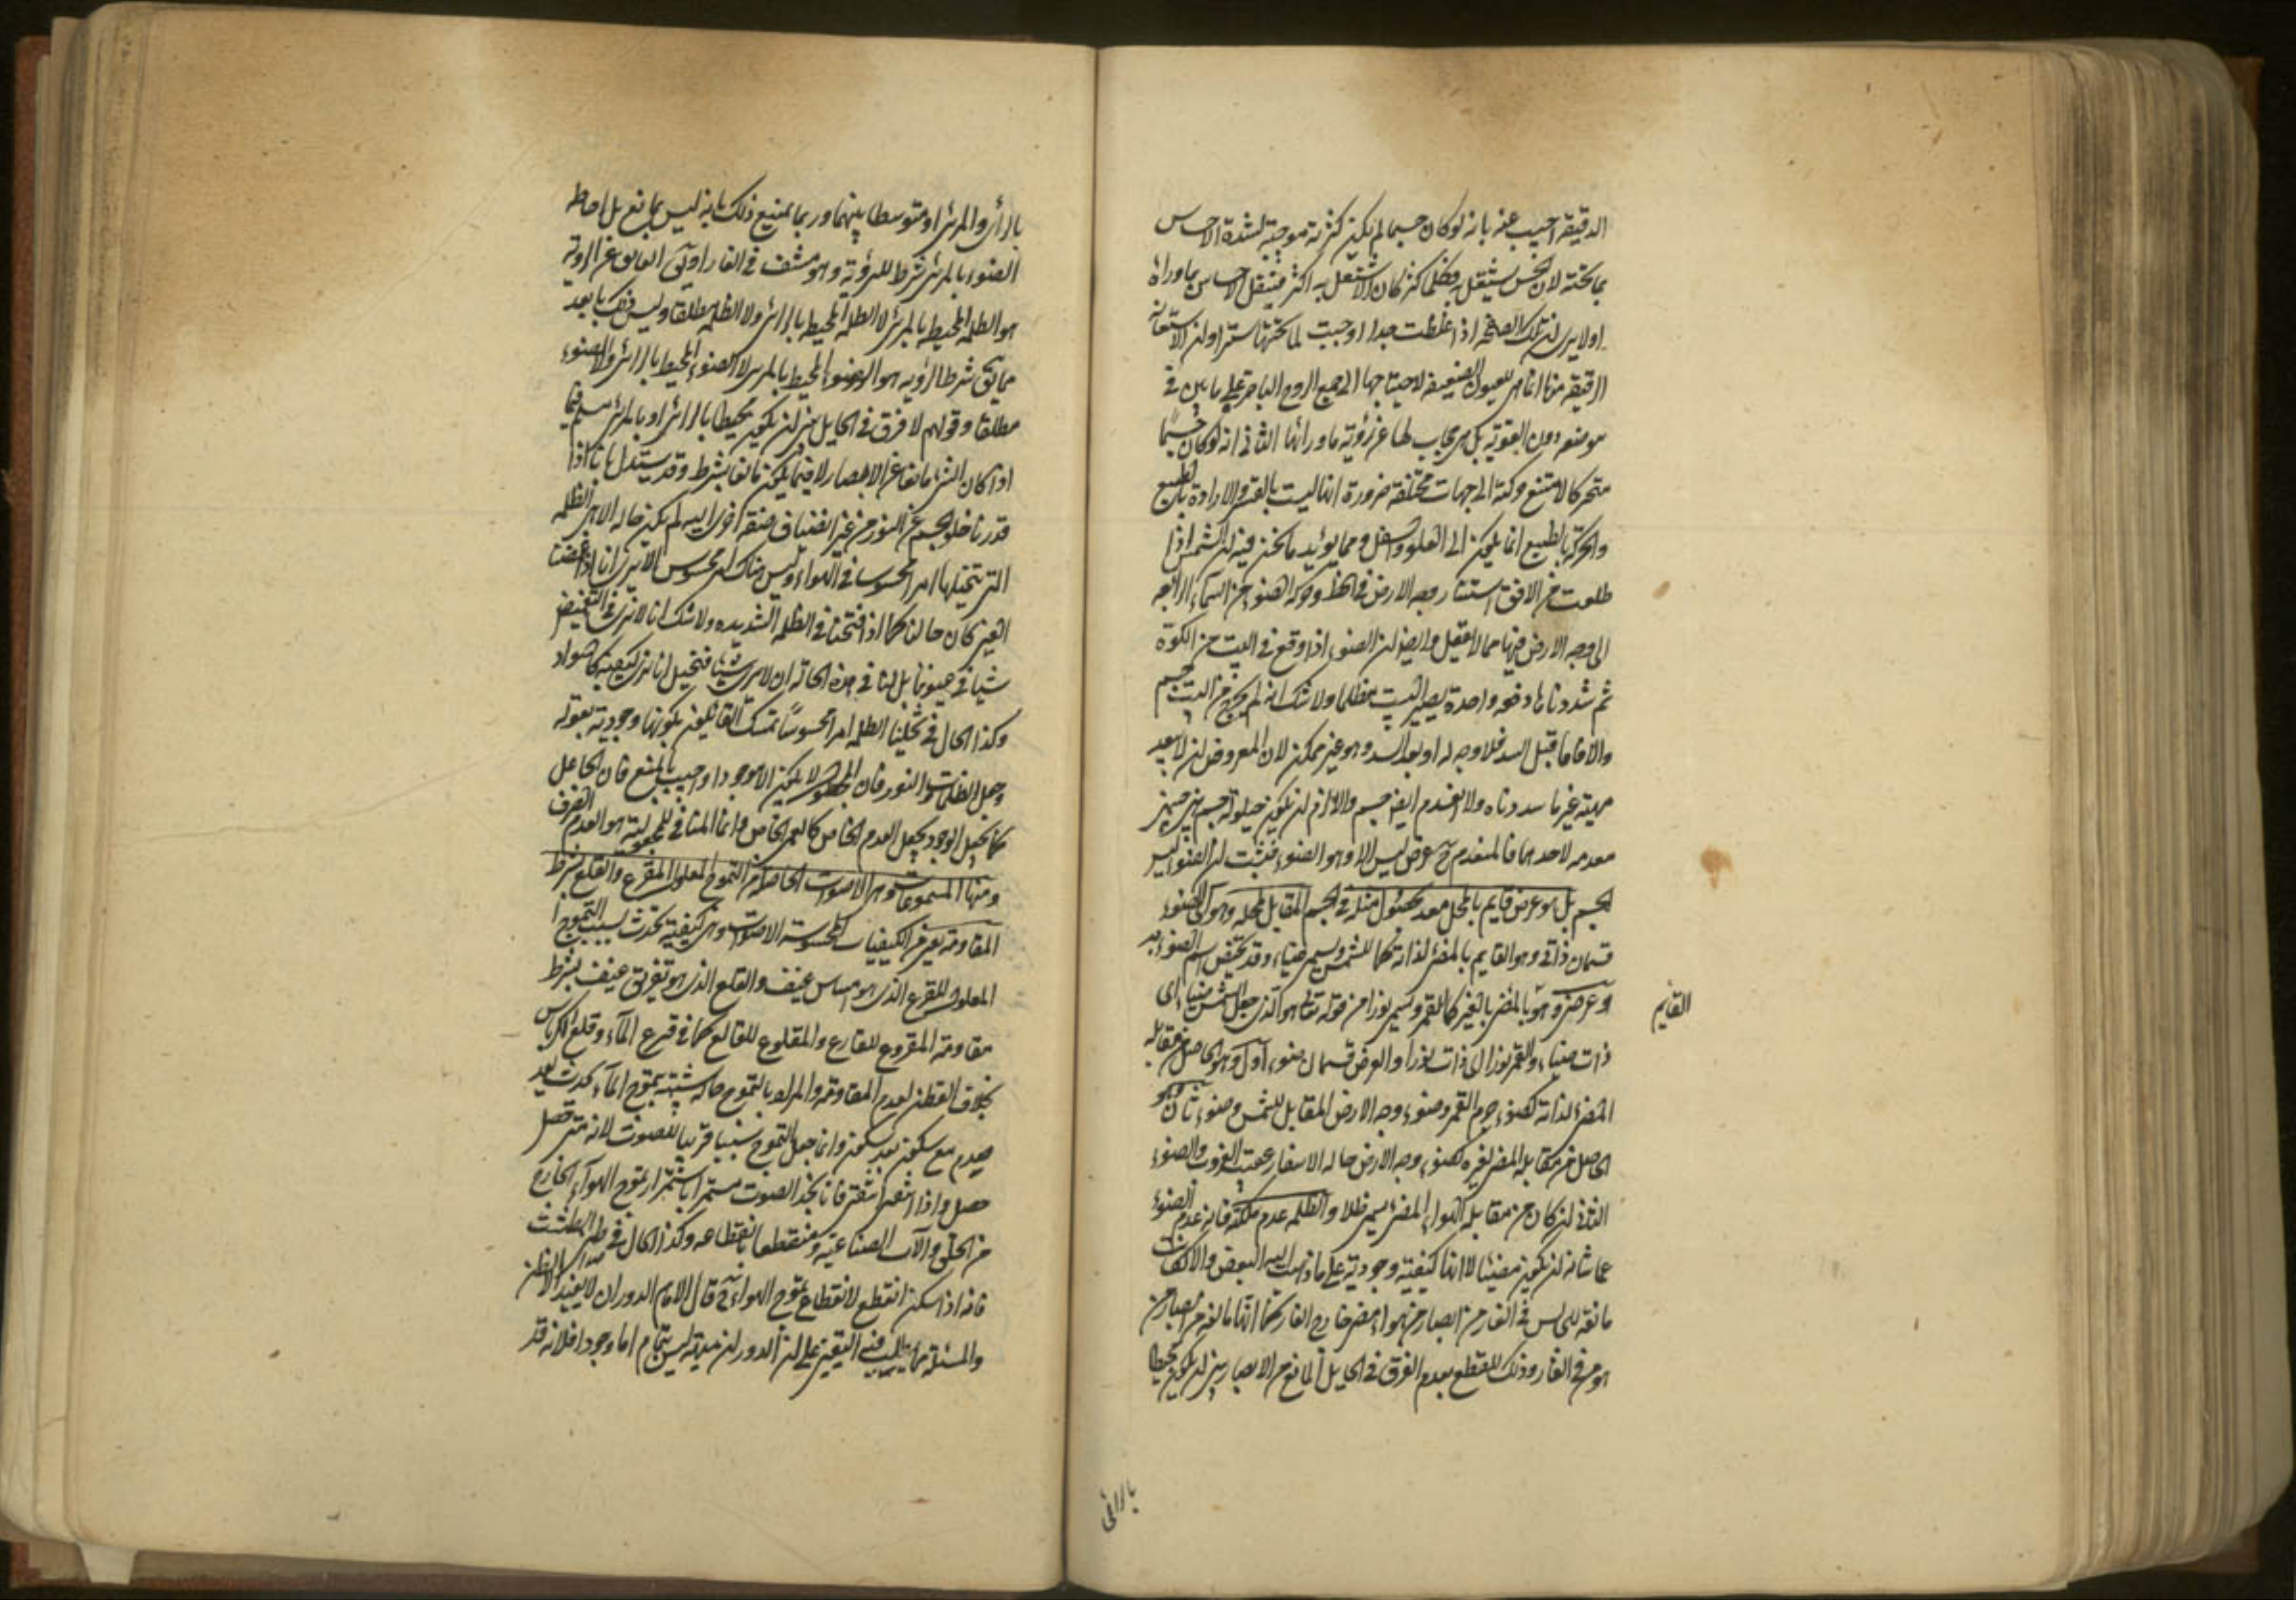 الدقيقة اجيب عنه بانه لو كان جسما لم يكن كثرته موجبة لشدة الاحساس
بما تحته لان الحس يشتغل به فكلما كثر كان الاشتغال به اكثر فيقل الاحساس بما وراءه
اولا يرى ان تلك الصفحة اذا غلظت جدا اوجبت لما تحتها سترا وان الاستعانة
الرقيقة منها انما هى للعيون الضعيفة لاحتياجها الى جمع الروح الباصرة على ما بين فى
موضعه دون القوية بل هى حجاب لها عن رؤية ما ورائها الثانى انه لو كان جسما
متحركا لامتنع حركته الى جهات مختلفة ضرورة انها ليست بالقسر والارادة بل بالطبع
والحركة بالطبع انما يكون الى العلو والسفل ومما يؤيد ما نحن فيه ان الشمس اذا
طلعت من الافق استنار وجه الارض فى لحظة وحركة الضوء من السماء الرابعة
الى وجه الارض فيها مما لا يعقل وايضا ان الضوء اذا وقع فى البيت من الكوة
ثم سددناها دفعة واحدة يصير البيت مظلما ولا شك انه لم يخرج من البيت جسم
والا فاما قبل السد فلا وجه له او بعد السد وهو غير ممكن لان المفروض ان لا بعد
غير ما سددناه ولا انعدم ايضا جسم والا لزم ان يكون حيلولة جسم بين جسمين
معدمة لاحدهما فالمنعدم ح عرض ليس الا وهو الضوء فثبت ان الضوء ليس
بجسم بل هو عرض قايم بالمحل معد لحصول مثله فى الجسم المقابل لمحله وهو اى الضوء
قسمان ذاتى وهو القايم بالمضىء لذاته كما للشمس ويسمى ضياء وقد يختص اسم الضوء به
وعرضى وهو بالمضىء بالغير كما للقمر ويسمى نورا من قوله تعالى هو الذى جعل الشمس ضياء اى
القايم
ذات ضياء والقمر نورا اى ذات نور والعرض قسمان ضوء اول وهو الحاصل من مقابلة
المضىء لذاته كضوء جرم القمر وضوء وجه الارض المقابل للشمس وضوء ثان وهو
الحاصل من مقابلة المضىء لغيره كضوء وجه الارض حالة الاسفار وعقيب الغروب والضوء
الثانى ان كان من مقابلة الهواء المضىء يسمى ظلا والظلمة عدم ملكة فانه عدم الضوء
عما شانه ان يكون مضيئا لا انها كيفية وجودية على ما ذهب اليه البعض والا لكانت
مانعة للجالس فى الغار من ابصار من هو فى هواء مضىء خارج الغار كما انها مانعة من ابصار من
هو فى الغار وذلك للقطع بعدم الفرق فى الحايل المانع من الابصار بين ان يكون محيطا
بالرائى
بالرائى والمرئى او متوسطا بينهما وربما يمنع ذلك بانه ليس بمانع بل احاطة
الضوء بالمرئى شرط للرؤية وهو منتف فى الغار او بان العايق عن الرؤية
هو الظلمة المحيطة بالمرئى لا الظلمة المحيطة بالرائى ولا الظلمة مطلقا وليس ذلك بابعد
مما يق شرط الرؤية هو الضوء المحيط بالمرئى لا الضوء المحيط بالرائى ولا الضوء
مطلقا وقولهم لا فرق فى الحايل بين ان يكون محيطا بالرائى او بالمرئى مسلم فيما
اذا كان الشىء مانعا عن الابصار لا فيما يكون مانعا بشرط وقد يستدل بانا اذا
قدرنا خلو الجسم عن النور من غير انضياف صفة اخرى اليه لم يكن حاله الا هى الظلمة
التى نتخيلها امرا محسوسا فى الهواء وليس هناك امر محسوس الا ترى انا اذا غمضنا
العين كان حالنا كما اذا فتحنا فى الظلمة الشديدة ولا شك انا لا نرى فى التغميض
شيئا فى عيوننا بل لنا فى هذه الحالة ان لا نرى شيئا فنتخيل انا نرى كيفية كالسواد
وكذا الحال فى تخيلنا الظلمة امرا محسوسا تمسك القائلون بكونها وجودية بقوله
وجعل الظلمات والنور فان المجعول لا يكون الا موجودا واجيب بالمنع فان الجاعل
كما يجعل الوجود يجعل العدم الخاص كالعمى الخاص وانما المنافى للمجعولية هو العدم الصرف
ومنها المسموعات وهى الاصوات الحاصلة من التموج المعلول للقرع والقلع بشرط
المقاومة يعنى من الكيفيات المحسوسة الاصوات وهى كيفية تحدث بسبب التموج
المعلول للقرع الذى هو امساس عنيف والقلع الذى هو تفريق عنيف بشرط
مقاومة المقروع للقارع والمقلوع للقالع كما فى قرع الماء وقلع الكرباس
بخلاف القطن لعدم المقاومة والمراد بالتموج حالة شبيهة بتموج الماء تحدث بعد
صدم مع سكون بعد سكون وانما جعل التموج سببا قريبا للصوت لانه متى حصل
حصل واذا انتفى انتفى فانا نجد الصوت مستمرا باستمرار تموج الهواء الخارج
من الحلق والآلات الصناعية ومنقطعا بانقطاعه وكذا الحال فى طنين الطست
فانه اذا سكن انقطع لانقطاع تموج الهواء ح قال الامام الدوران لا يفيد الا الظن
والمسئلة مما يطلب فيه اليقين على ان الدوران هيهنا ليس بتمام اما وجودا فلانه قد